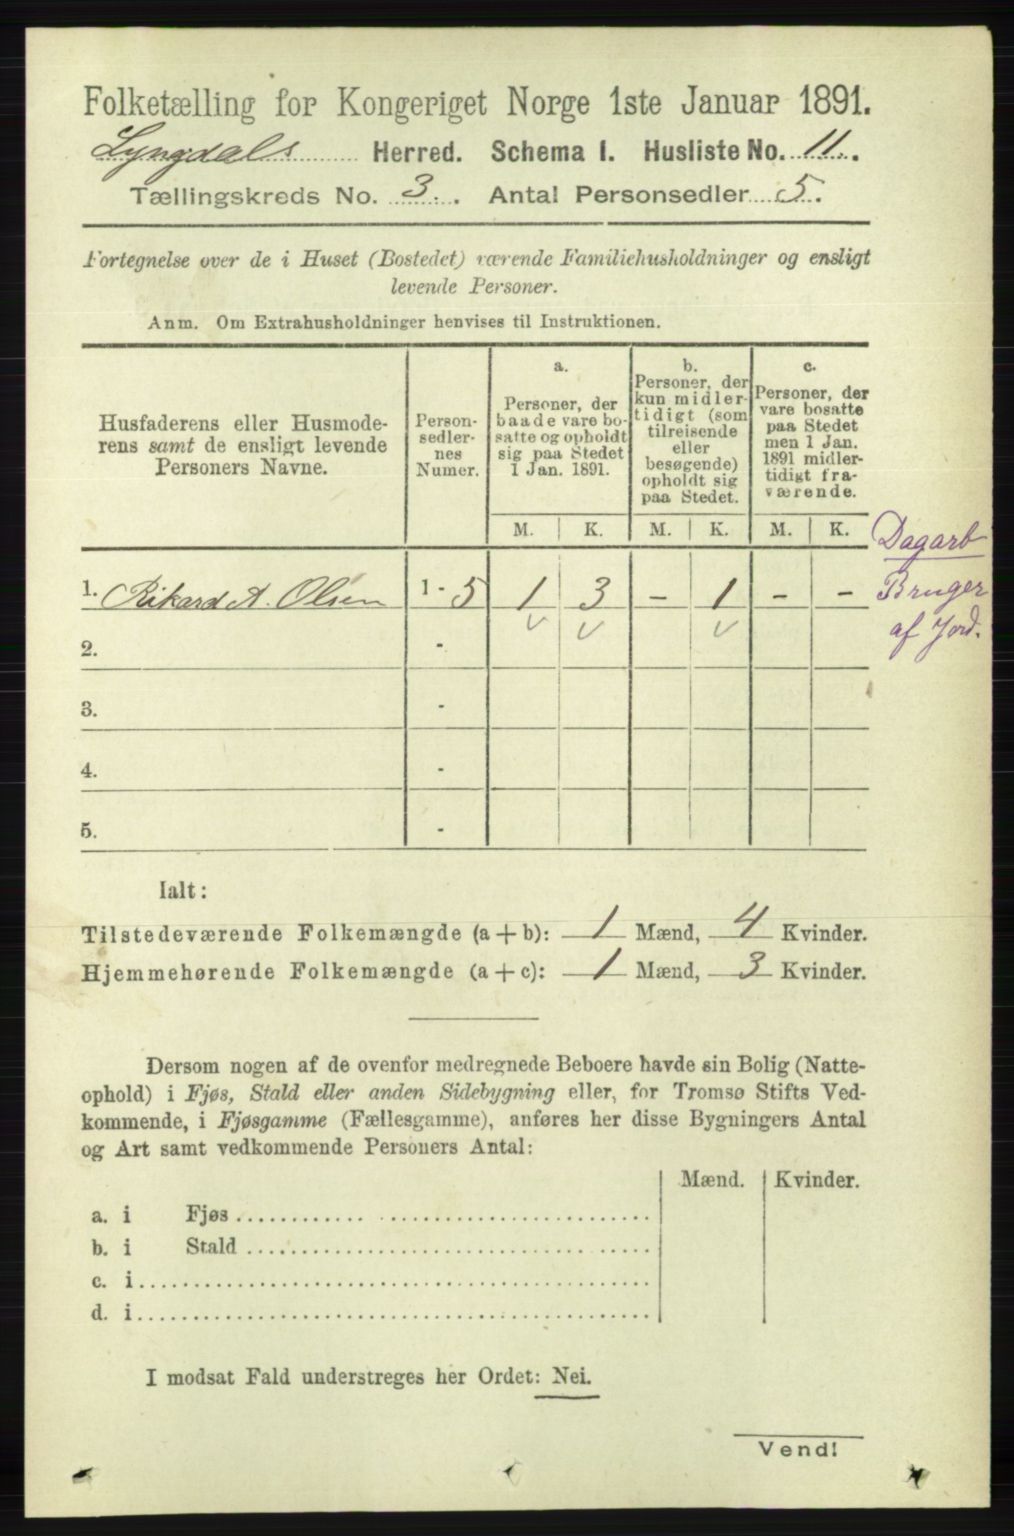 Folketælling for Kongeriget Norge 1ste Januar 1891.
Lyngdals Herred. Schema I. Husliste No. 11.
Tællingskreds No. 3. Antal Personsedler 5.
Fortegnelse over de i Huset (Bostedet) værende Familiehusholdninger og ensligt
levende Personer.
Anm. Om Extrahusholdninger henvises til Instruktionen.
Husfaderens eller Husmode-
rens samt de ensligt levende
Personers Navne.
Person-
sedler-
nes
Numer.
a.
Personer, der
baade vare bo-
satte og opholdt
sig paa Stedet
1 Jan. 1891.
b.
Personer, der
kun midler-
tidigt (som
tilreisende
eller
besøgende)
opholdt sig
paa Stedet.
c.
Personer, der
vare bosatte
paa Stedet
men 1 Jan.
1891 midler-
tidigt fra-
værende.
M. K. M. K. M. K.
Dagarb
1. Rikard A. Olsen 1 - 5 1 3 - 1 - -
Bruger
af Jord.
2. -
3. -
4. -
5. -
Ialt:
Tilstedeværende Folkemængde (a + b): 1 Mænd, 4 Kvinder.
Hjemmehørende Folkemængde (a + c): 1 Mænd, 3 Kvinder.
Dersom nogen af de ovenfor medregnede Beboere havde sin Bolig (Natte-
ophold) i Fjøs, Stald eller anden Sidebygning eller, for Tromsø Stifts Ved-
kommende, i Fjøsgamme (Fællesgamme), anføres her disse Bygningers Antal
og Art samt vedkommende Personers Antal:
Mænd. Kvinder.
a. i Fjøs
b. i Stald
c. i
d. i
I modsat Fald understreges her Ordet: Nei.
Vend!